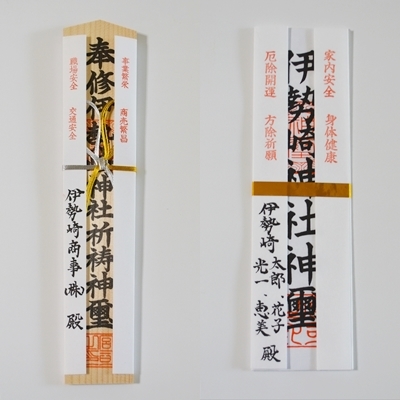 事業繁栄
商売繁昌
奉修伊勢崎神社祈祷神璽
職場安全
交通安全
伊勢崎商事㈱ 殿
家内安全
身体健康
伊勢崎神社神璽
厄除開運
方除祈願
伊勢崎 太郎、花子
光一、恵美 殿